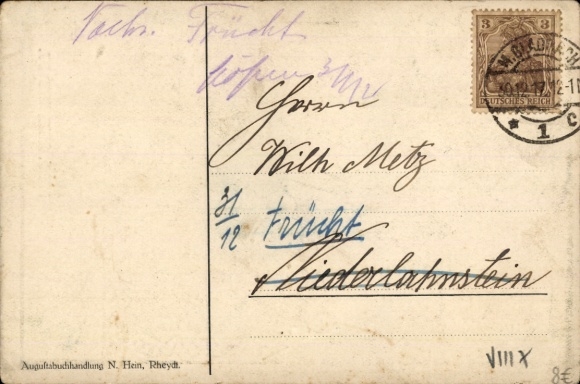 Frücht
31/12
3
3
DEUTSCHES REICH
M. GLADBACH
30.12.17. 12-1
* 1 c
Herrn
Wilh Metz
31/12 Frücht
Niederlahnstein
Augustabuchhandlung N. Hein, Rheydt.
VIII X
8€